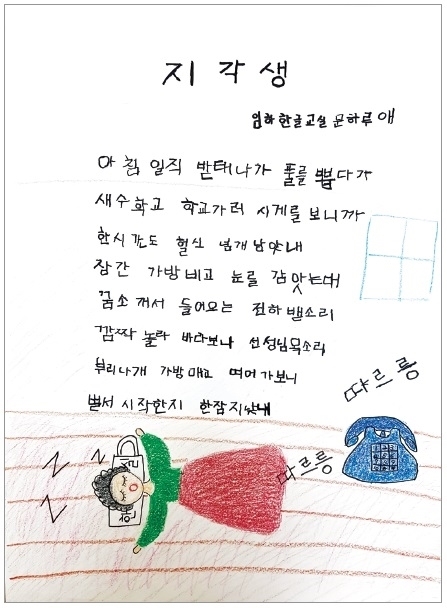 지각생
임하한글교실 문하루애
아침 일직 받태나가 풀를 뽑다가
새수하고 학교가러 시게를 보니까
한시간도 헐신 넘개 남앗내
잠간 가방 비고 눈를 감앗는대
꿈소 깨서 들어오는 전하밸소리
깜짝 놀라 바다보니 선성님목소리
부리나개 가방 매고 띠어가보니
뻘서 시작한지 한잠지낫내
따르릉
따르릉
Z Z Z
한글